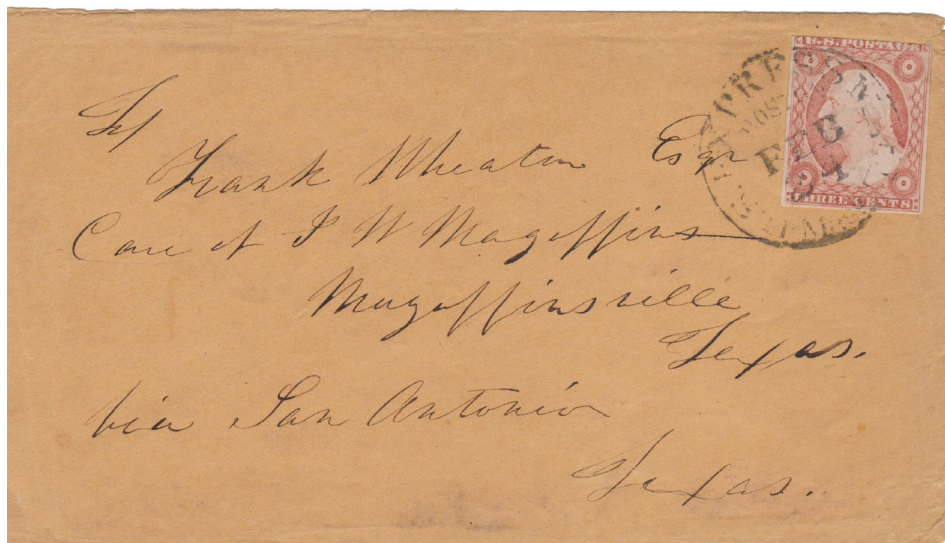 U.S. POSTAGE
THREE CENTS
FEB
4
Frank Wheaton Esqr
Care of J W Magoffins
Magoffinsville
Texas.
via San Antonio
Texas.